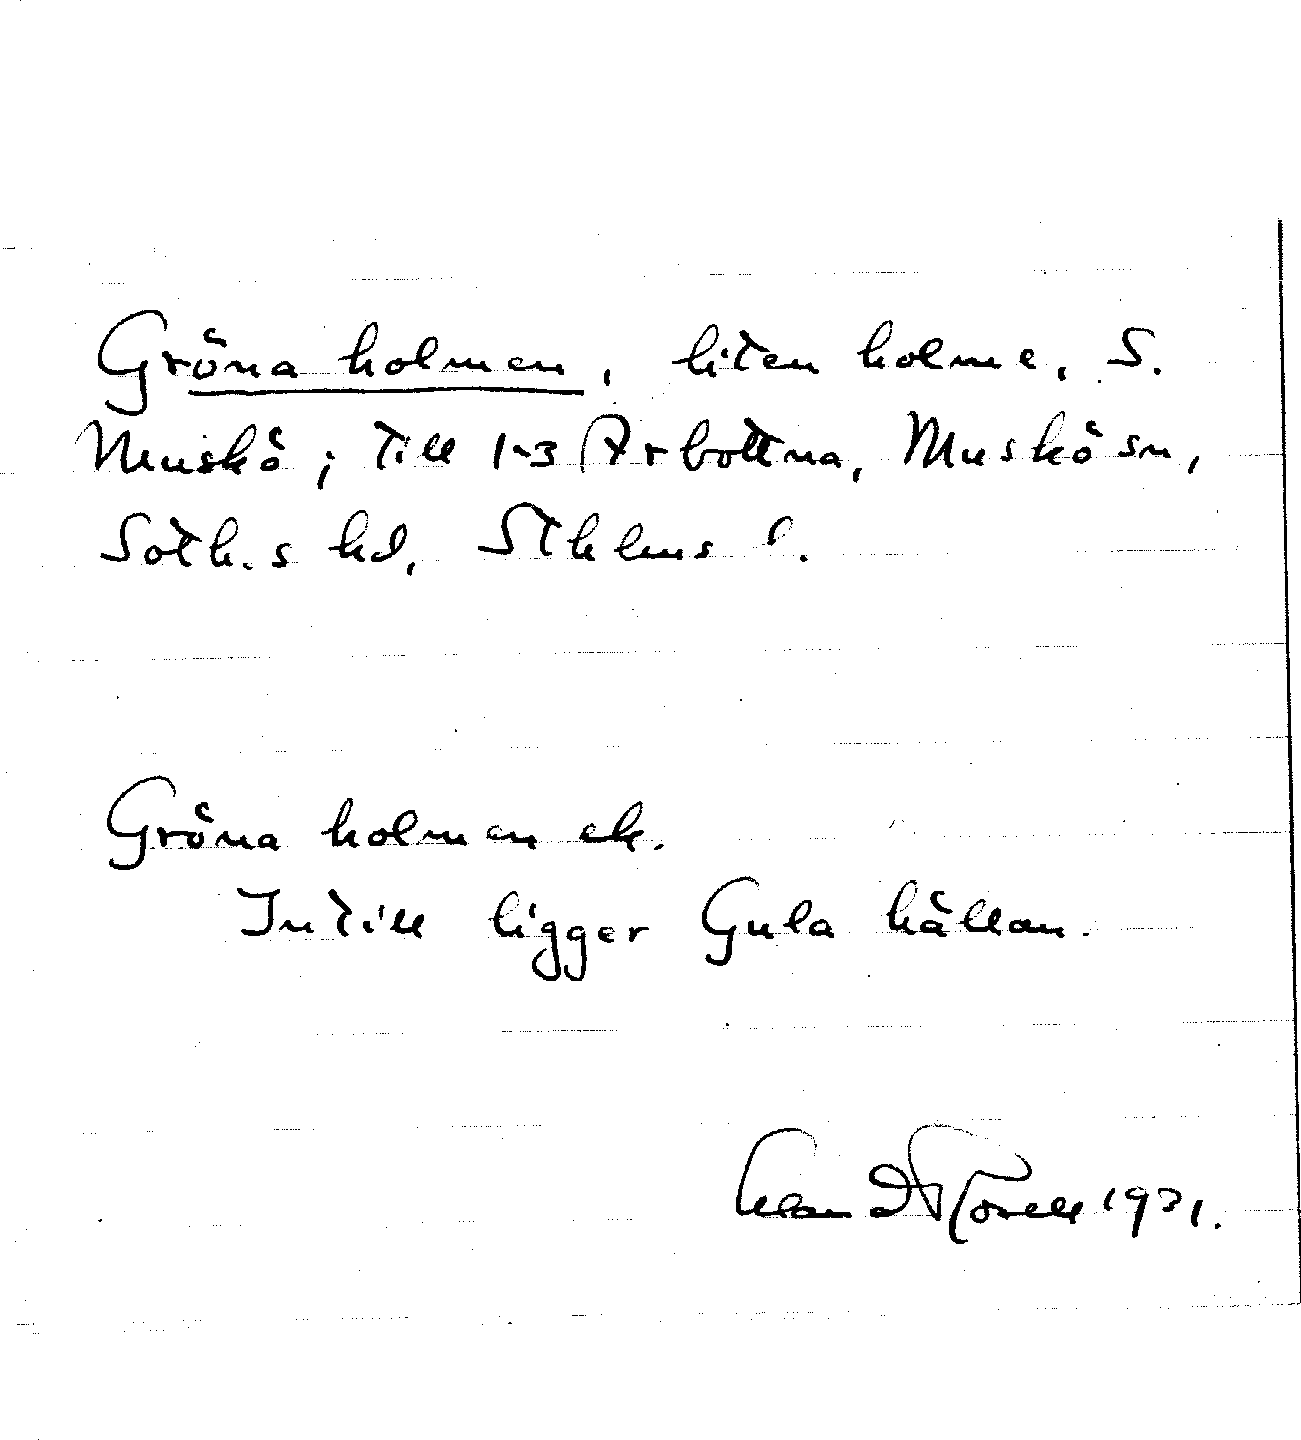 Gröna holmen, liten holme, S.
Muskö; till 1-3 Arbottna, Muskö sn,
Soth.s hd, Sthlms l.
Gröna holmen ek.
Intill ligger Gula hällan.
1931.